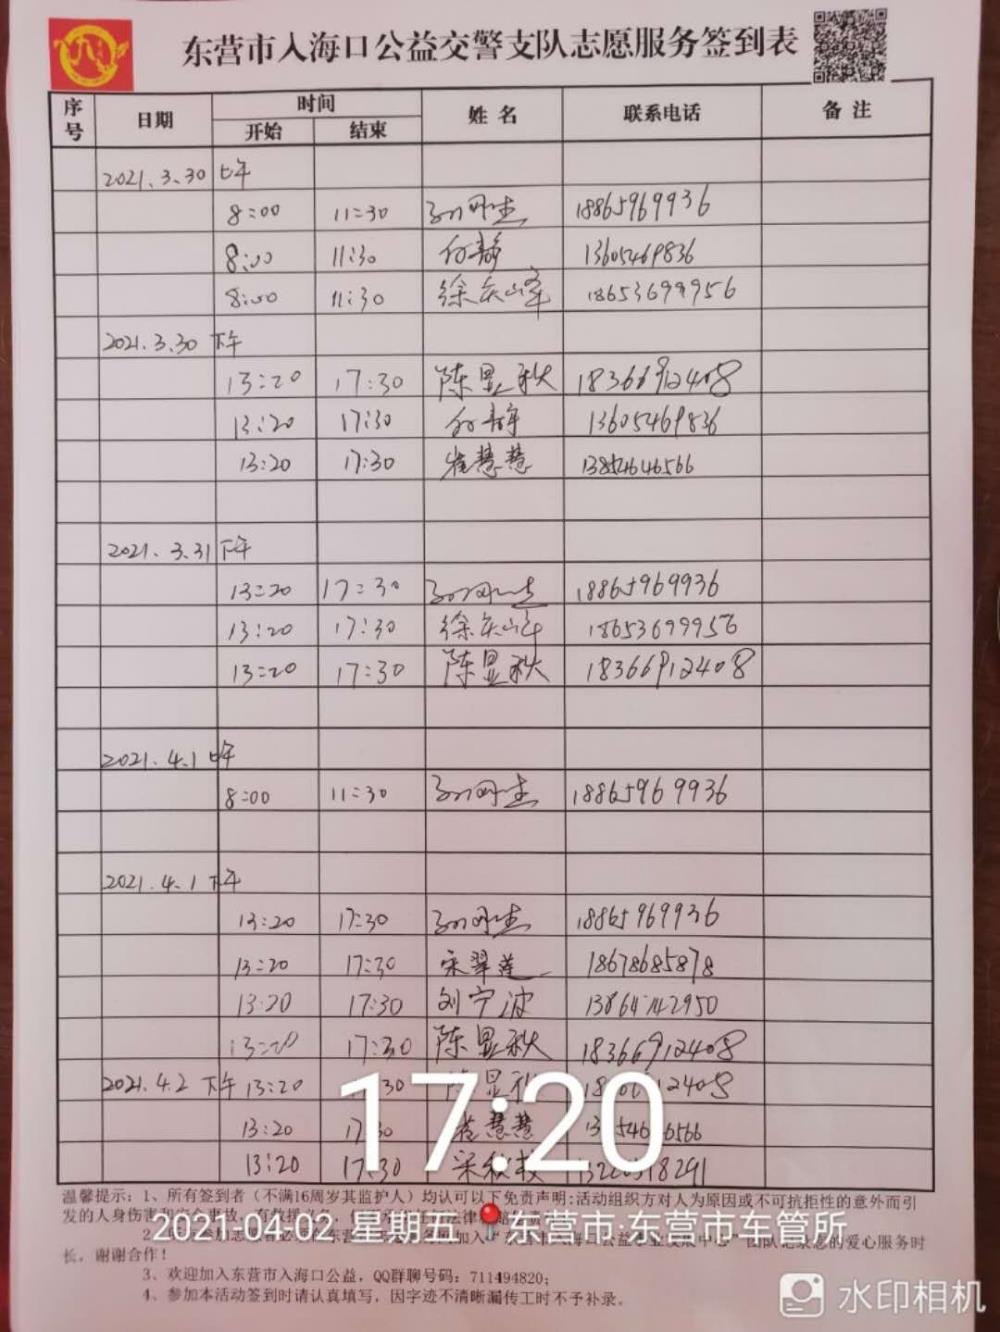 东营市入海口公益交警支队志愿服务签到表
序号 日期 时间 姓名 联系电话 备注
开始 结束
2021.3.30 上午
8:00 11:30 18865969936
8:00 11:30 付静 13605469836
8:00 11:30 徐庆峰 18653699956
2021.3.30 下午
13:20 17:30 陈显秋 18366912408
13:20 17:30 付静 13605469836
13:20 17:30 崔慧慧 13854646566
2021.3.31 下午
13:20 17:30 18865969936
13:20 17:30 徐庆峰 18653699956
13:20 17:30 陈显秋 18366912408
2021.4.1 上午
8:00 11:30 18865969936
2021.4.1 下午
13:20 17:30 18865969936
13:20 17:30 宋翠莲 18678685878
13:20 17:30 刘宁波
13:20 17:30 陈显秋 18366912408
2021.4.2 下午 13:20 陈显秋
13:20 17:30 崔慧慧
13:20 17:30
17:20
温馨提示:1、所有签到者(不满16周岁其监护人)均认可以下免责声明:活动组织方对人为原因或不可抗拒性的意外而引
发的人身伤害
2021-04-02 星期五 东营市·东营市车管所
长,谢谢合作!
3、欢迎加入东营市入海口公益,QQ群聊号码:711494820;
4、参加本活动签到时请认真填写,因字迹不清晰漏传工时不予补录。
水印相机